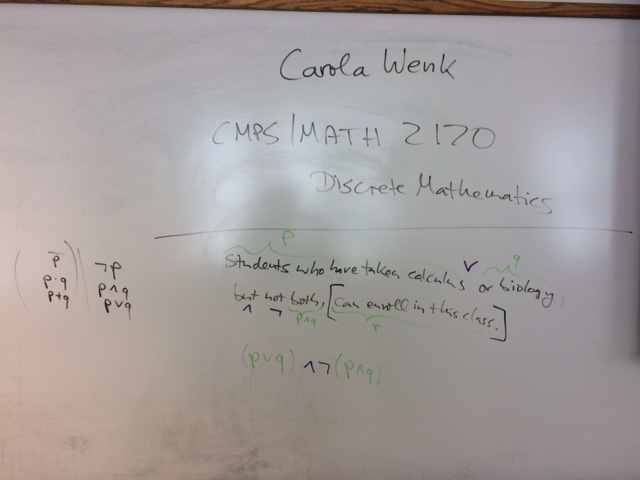 Carola Wenk
CMPS/MATH 2170
Discrete Mathematics
p
Students who have taken calculus ∨ or biology, q
but not both, [can enroll in this class.]
∧ ¬ p∧q r
(p∨q) ∧¬(p∧q)
p̅ ¬p
p·q p∧q
p+q p∨q